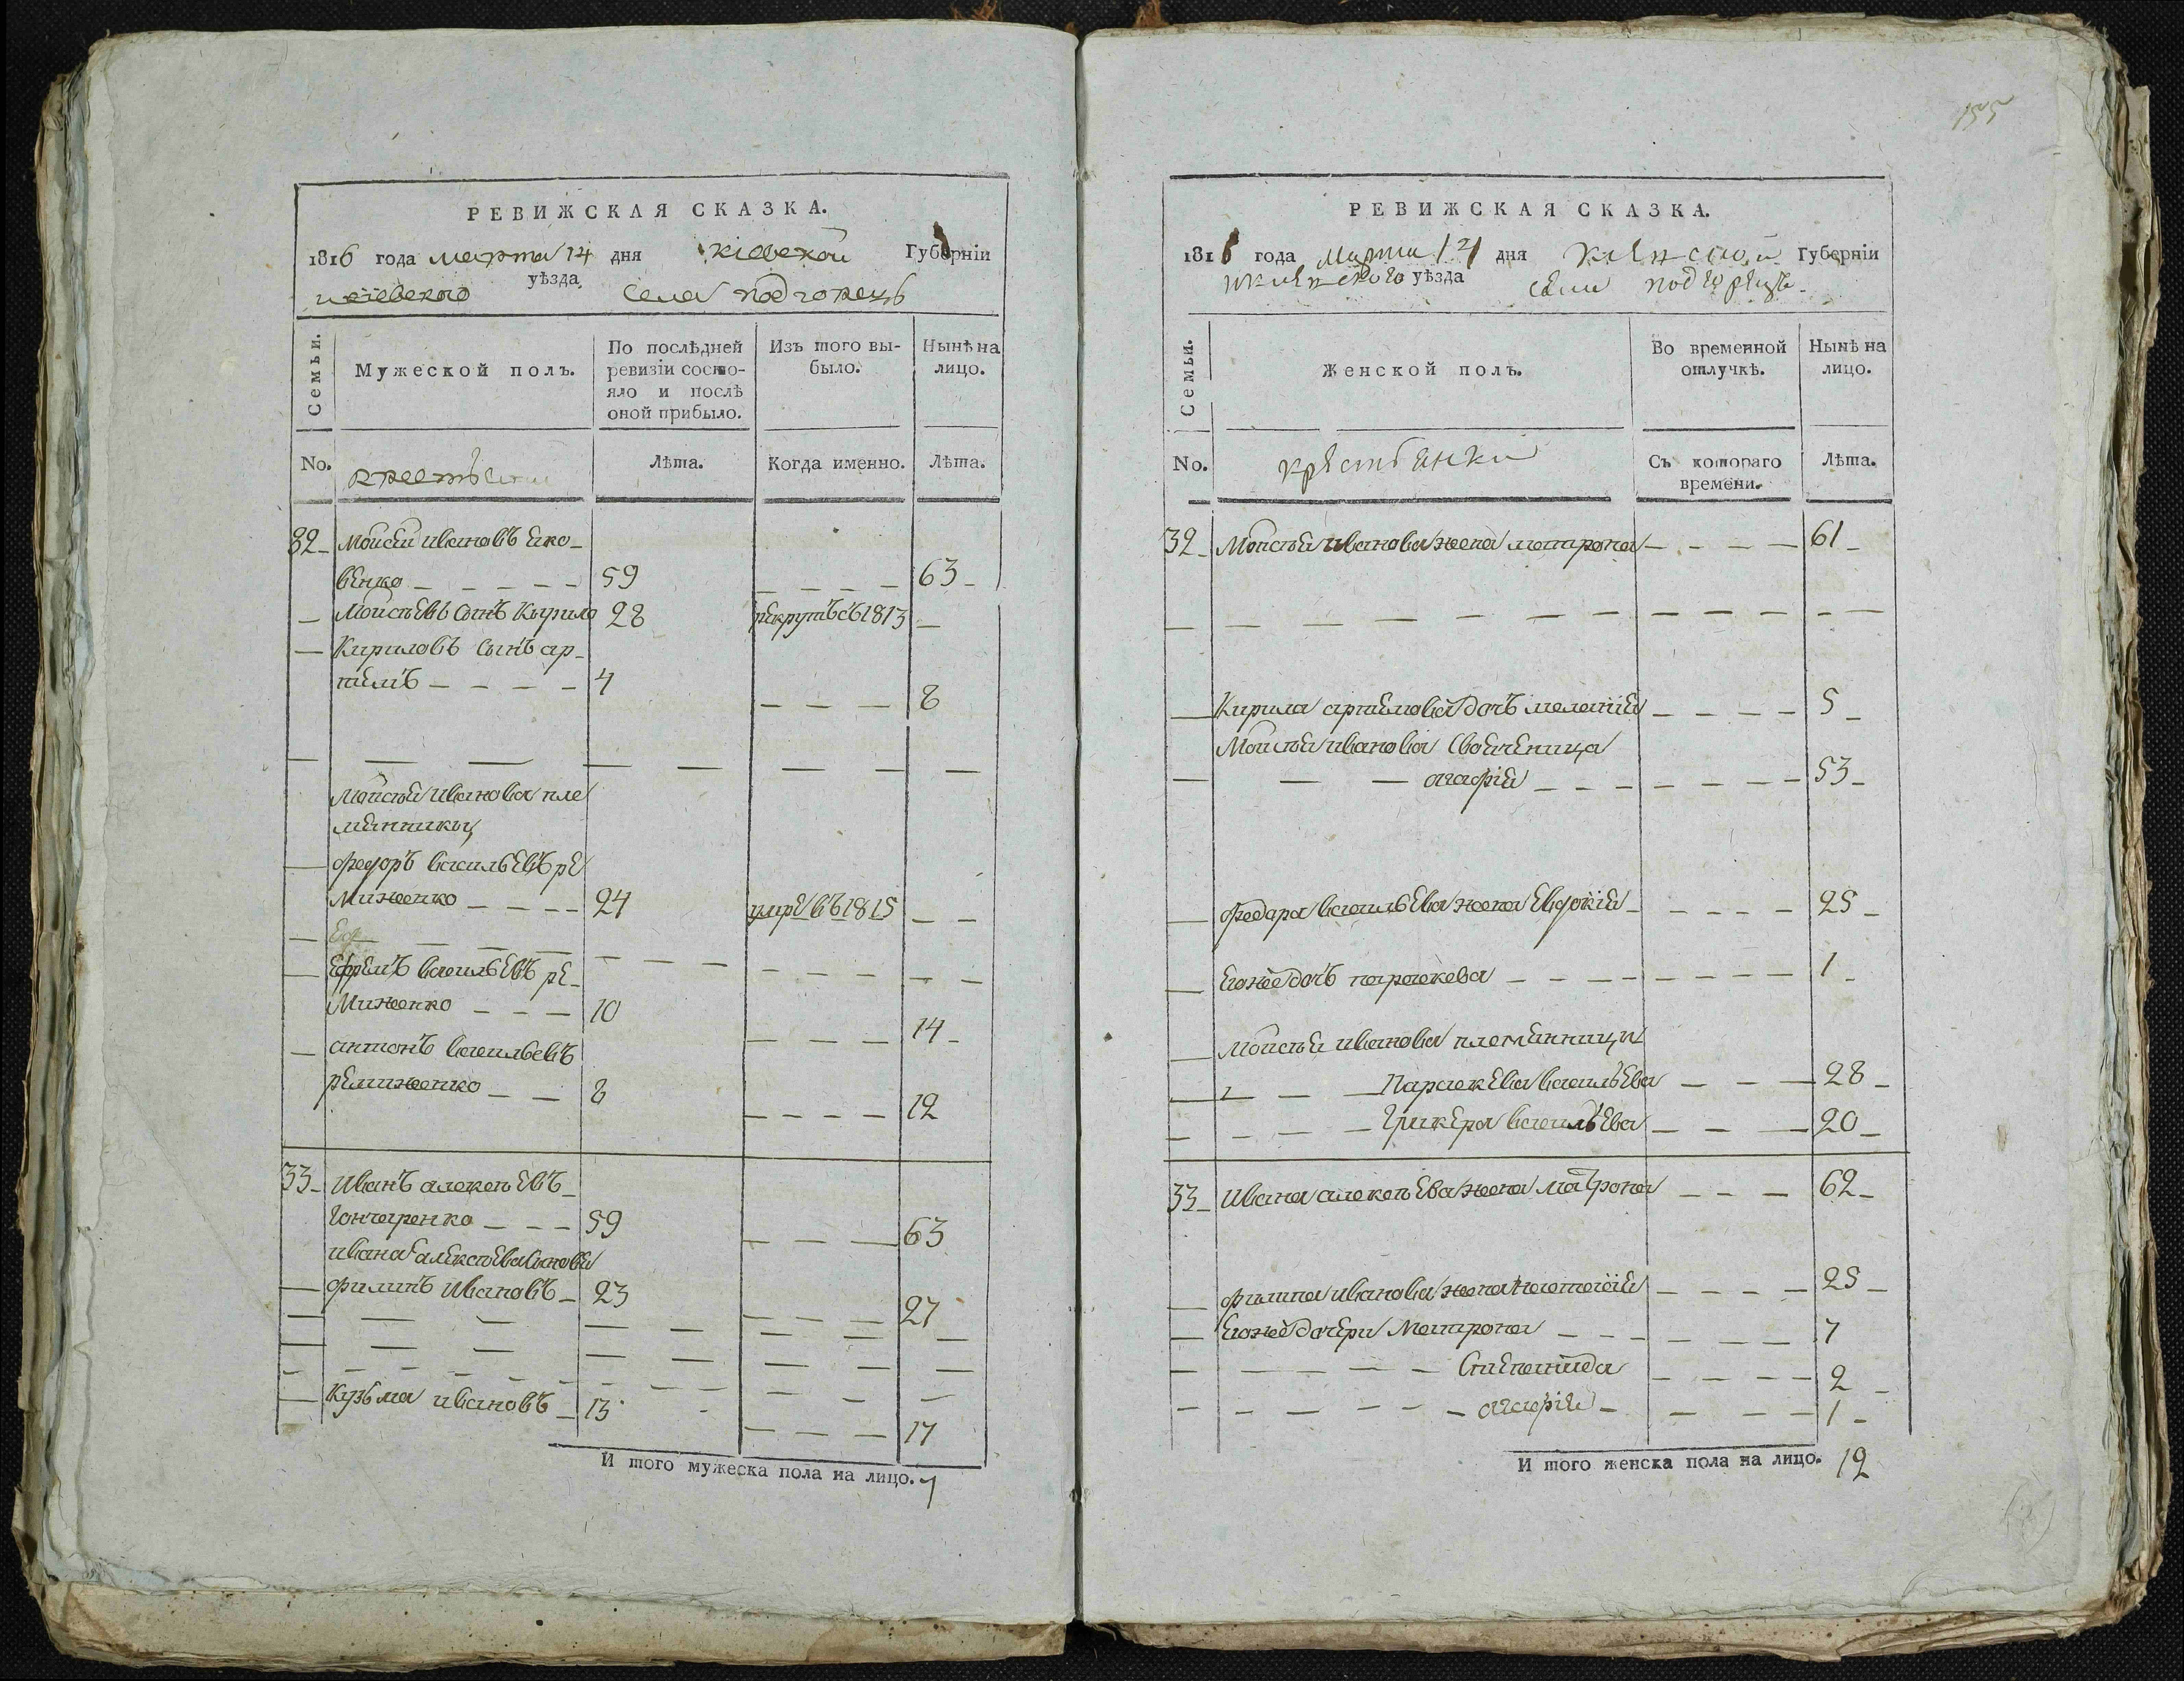 РЕВИЖСКАЯ СКАЗКА.
1816 года марта 14 дня кіевской Губерніи
икіевскаго уѣзда села подгорецъ
Семьи.
Мужеской полъ.
По послѣдней ревизіи состояло и послѣ оной прибыло.
Изъ того выбыло.
Нынѣ на лицо.
No.
крестьяни
Лѣта.
Когда именно.
Лѣта.
32 Моисей ивановъ яко-
венко 59 63
Моисѣевъ сынъ Кырило 28 рекрутъ съ 1813
Кириловъ сынъ ар-
темъ 4 8
Моисѣя иванова пле
мянники
федоръ васильевъ ре
миженко 24 умре въ 1815
Еф
Ефремъ васильевъ ре-
миженко 10 14
антонъ васильевъ
ремиженко 8 12
33 Иванъ алексѣевъ
гончаренко 59 63
ивана алексѣева сыновя
филипъ Ивановъ 23 27
Кузьма ивановъ 13 17
И того мужеска пола на лицо. 7
155
РЕВИЖСКАЯ СКАЗКА.
1816 года Марта 14 дня Губерніи
уѣзда
Семьи.
Женской полъ.
Во временной отлучкѣ.
Нынѣ на лицо.
No.
крестьянки
Съ котораго времени.
Лѣта.
32 Моисѣя иванова жена матрона 61
Кирила артемова дочь мелания 5
Моисѣя иванова своячница
агафія 53
федора васильева жена Евдокія 25
Егоже дочь параскева 1
Моисѣя иванова племянници
Параскева васильева 28
Гликера васильева 20
33 Ивана алексѣева жена матрона 62
филипа иванова жена Настасія 25
Егоже дочери Матрона 7
Степанида 2
агафія 1
И того женска пола на лицо. 12